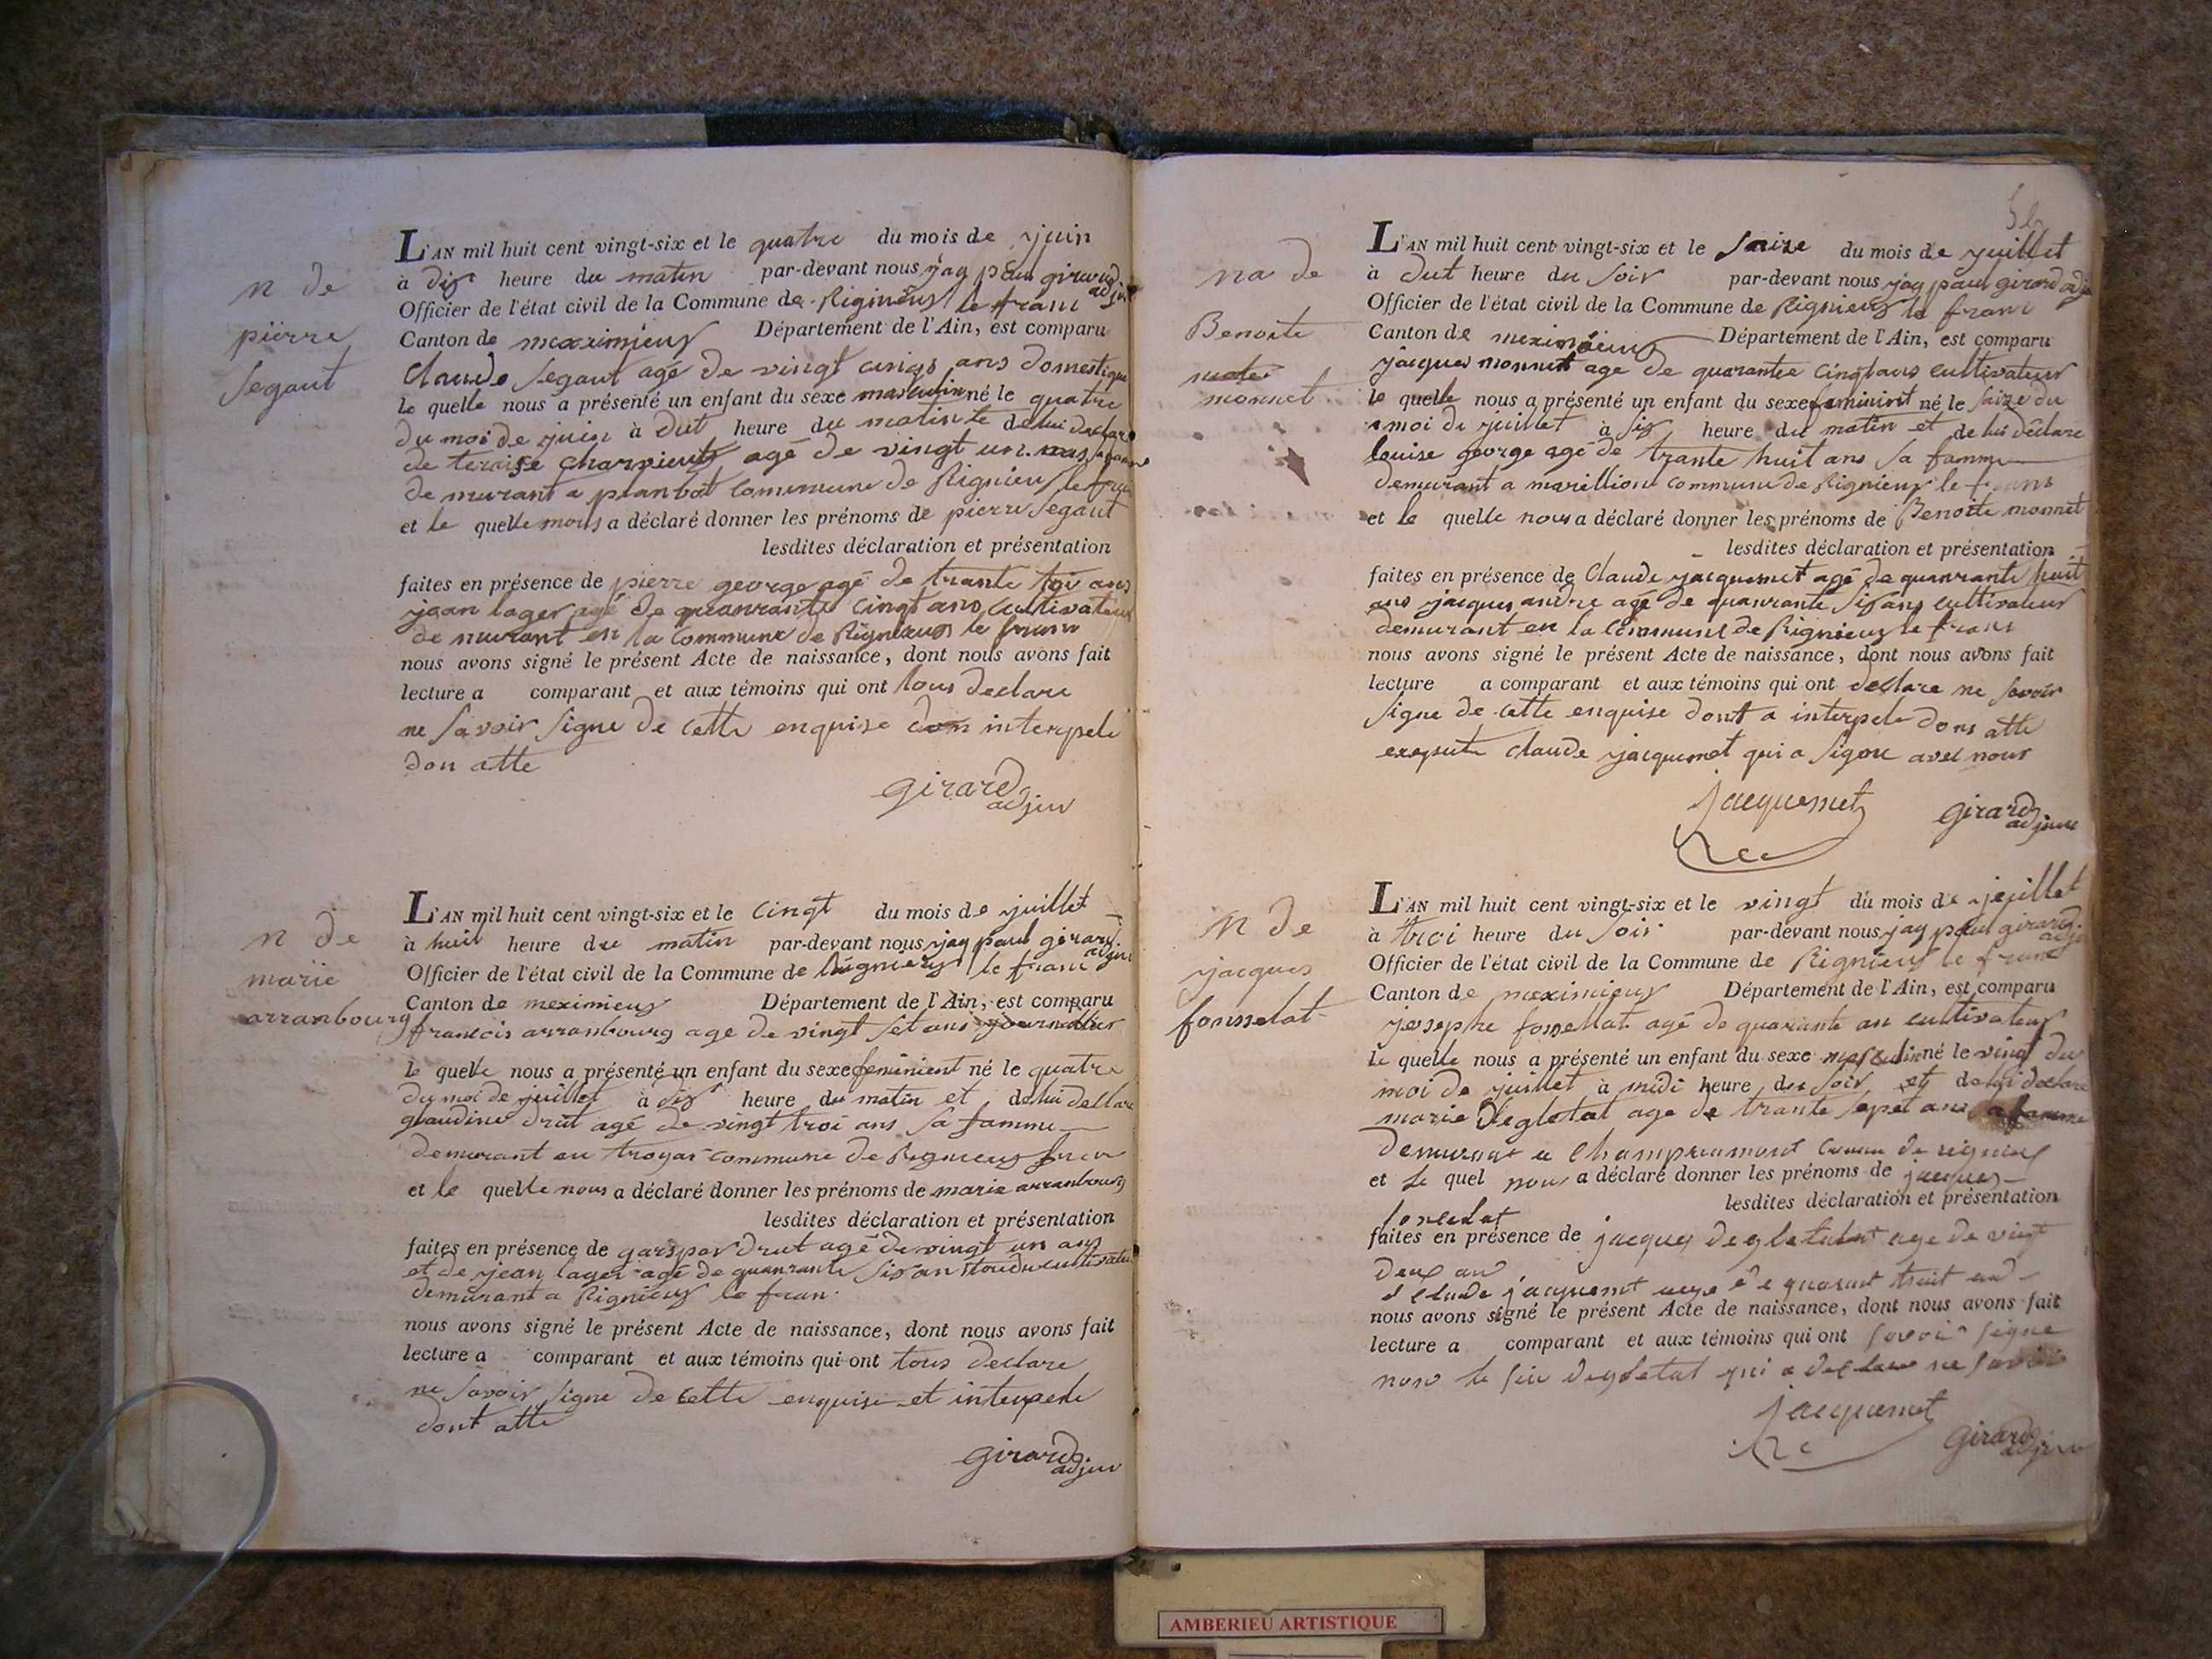 n de
pierre
segaut
L'AN mil huit cent vingt-six et le quatre du mois de juin
à dix heure du matin par-devant nous jay paul girard adju
Officier de l'état civil de la Commune de Rignieux le franc
Canton de meximieux Département de l'Ain, est comparu
Claude segaut agé de vingt cinqs ans domestique
le quelle nous a présenté un enfant du sexe masculin né le quatre
du moi de juin à dut heure du matin de lui declare
de teraise charvieux agé de vingt un
de murant a planbot Commune de Rignieux le fran
et le quelle nous a déclaré donner les prénoms de pierre segaut
lesdites déclaration et présentation
faites en présence de pierre george agé de trante ans
jean lager agé de quanrante cinqt ans Cultivateur
de murant en la Commune de Rignieux le franc
nous avons signé le présent Acte de naissance, dont nous avons fait
lecture a comparant et aux témoins qui ont tous declare
ne savoir signe de cette enquise interpele
don atte
girard
adjiu
n de
marie
arranbourg
L'AN mil huit cent vingt-six et le cinqt du mois de juillet
à huit heure du matin par-devant nous jay paul gerard adju
Officier de l'état civil de la Commune de Rignieux le franc
Canton de meximieux Département de l'Ain, est comparu
francois arranbourg age de vingt set ans journallier
le quelle nous a présenté un enfant du sexe feminient né le quatre
du moi de juillet à dix heure du matin et de lui declare
glaudine drut agé de vingt troi ans sa famme
demurant au troyas commune de Rignieux
et le quelle nous a déclaré donner les prénoms de marie arranbourg
lesdites déclaration et présentation
faites en présence de garspar drut agé de vingt un ans
et de jean lager agé de quanrante six an cultivateur
demurant a Rignieux le fran
nous avons signé le présent Acte de naissance, dont nous avons fait
lecture a comparant et aux témoins qui ont tous declare
ne savoir signe de cette enquise et interpele
dont atte
girard
adjiu
na de
Benoite
monnet
L'AN mil huit cent vingt-six et le saize du mois de juillet
à dut heure du soir par-devant nous jay paul girard adju
Officier de l'état civil de la Commune de Rignieux le franc
Canton de meximieux Département de l'Ain, est comparu
jacques monnet age de quarantee cinqt ans cultivateur
le quelle nous a présenté un enfant du sexe feminint né le saize du
moi de juillet à six heure du matin et de lui declare
louise george agé de trante huit ans sa famme
demurant a marillion commune de Rignieux le frans
et le quelle nous a déclaré donner les prénoms de Benoite monnet
lesdites déclaration et présentation
faites en présence de Claude jacquemet agé de quanrante huit
ans jacques andre agé de quanrante six ans cultivateur
demurant en la Commune de Rignieux le frans
nous avons signé le présent Acte de naissance, dont nous avons fait
lecture a comparant et aux témoins qui ont declare ne savoir
signe de cette enquise dont a interpele dons atte
exepute Claude jacquemet qui a signe avec nous
jacquemet
girard
adjiu
N de
jacques
fousselat
L'AN mil huit cent vingt-six et le vingt du mois de juillet
à troi heure du soir par-devant nous jay paul girard adju
Officier de l'état civil de la Commune de Rignieux le franc
Canton de meximieux Département de l'Ain, est comparu
josephe agé de quarante an cultivateur
le quelle nous a présenté un enfant du sexe masculin né le vingt du
moi de juillet à midi heure du soir et de lui declare
marie degletat age de trante sepet ans sa famme
demurant a Champremont de rignieux
et le quel nous a déclaré donner les prénoms de jacques
lesdites déclaration et présentation
faites en présence de jacques degletat age de vingt
deux an
Claude jacquemet age de quarant huit an
nous avons signé le présent Acte de naissance, dont nous avons fait
lecture a comparant et aux témoins qui ont savoir signe
non le sieu degletat qui a declare ne savoir
jacquemet
girard
adjiu
AMBERIEU ARTISTIQUE